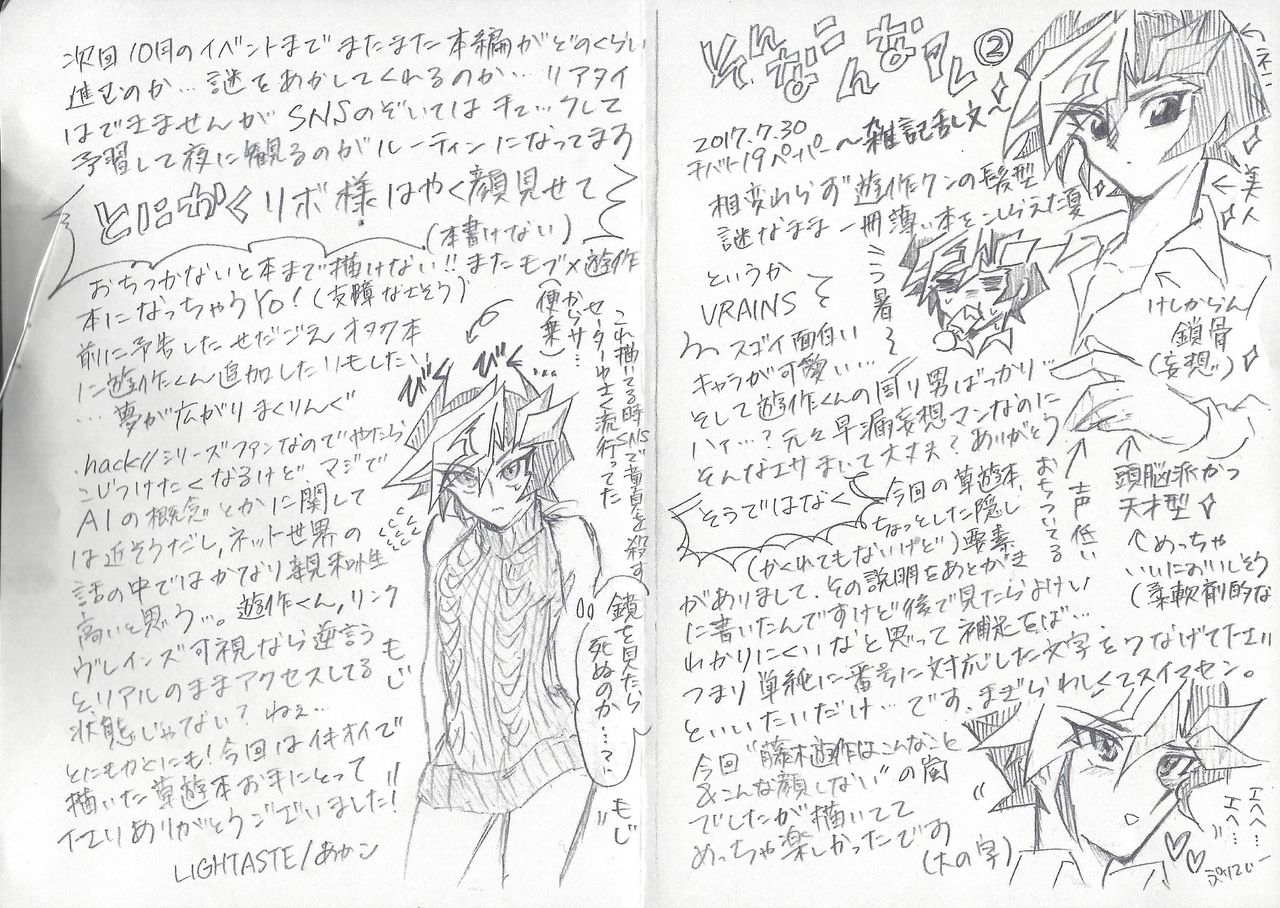 そんなこんなル②
2017.7.30
千バト19ペーパー ～雑記乱文～
相変わらず遊作クンの髪型
謎なまま一冊薄い本をこしらえた夏
というか
VRAINS
スゴイ面白い
キャラが可愛い…
そして遊作くんの周り男ばっかり…
ハァ…？元々早漏妄想マンなのに
そんなエサまいて大丈夫？ありがとう
そうではなく
今回の草遊本、
ちょっとした隠し
(かくれてもないけど)要素
がありまして、その説明をあとがき
に書いたんですけど後で見たらよけい
わかりにくいなと思って補足をば…
つまり単純に番号に対応した文字をつなげてただ
といいたいだけ…です。まぎらわしくてスイマセン。
今回"藤木遊作はこんなこと
&こんな顔しない"の嵐
でしたが描いてて
めっちゃ楽しかったです
(大の字)
美人
暑
けしからん
鎖骨
(妄想)
頭脳派かつ
天才型
声低い
おちついてる
めっちゃ
いいにおいしそう
(柔軟剤的な
エヘヘ…
エヘ…
次回10月のイベントまでまたまた本編がどのくらい
進むのか…謎をあかしてくれるのか…リアタイ
はできませんがSNSのぞいてはキャ…うして
予習して夜に観るのがルーティンになってます
とにかくリボ様はやく顔見せて
(本書けない)
おちつかないと本まで描けない!!またモブ×遊作
本になっちゃうYO！(支障なさそう)
前に予告したせだごえんオタク本
に遊作くん追加したりもしたい
…夢が広がりまくりんぐ
.hack//シリーズファンなのでやたら
こじつけたくなるけどマジで
AIの概念とかに関して
は近そうだし、ネット世界の
話の中ではかなり親和性
高いと思う…。遊作くん、リンク
ヴレインズ可視なら逆言う
と、リアルのままアクセスしてる
状態じゃない？ねぇ…
とにもかくにも！今回はイキオイで
描いた草遊本お手にとって
イエエリありがとうございました!!
LIGHTASTE/あかン
これ描いてる時SNSで童貞を殺す
セーターわさく流行ってた
(便乗)
びく
びく
…
鎖を見たら
死ぬのか…
もじ
もじ